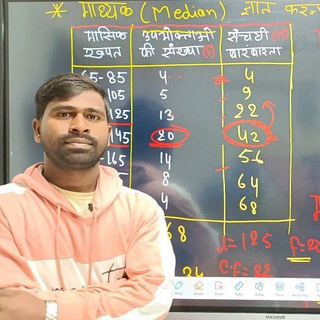 * माध्यक (Median) ज्ञात करना
मासिक खपत | उपभोक्ताओं की संख्या (f) | संचयी बारंबारता
65-85 | 4 | 4
105 | 5 | 9
125 | 13 | 22
145 | 20 | 42
-165 | 14 | 56
8 | 64
4 | 68
68
l=125
f=20
C.f=22